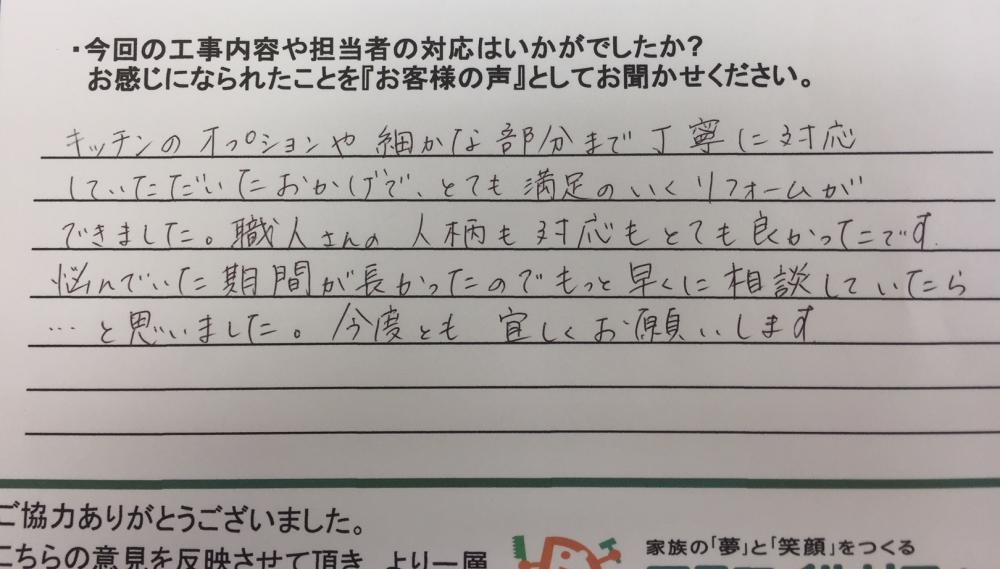 ・今回の工事内容や担当者の対応はいかがでしたか?
お感じになられたことを『お客様の声』としてお聞かせください。
キッチンのオプションや細かな部分まで丁寧に対応
していただいたおかげで、とても満足のいくリフォームが
できました。職人さんの人柄も対応もとても良かったです
悩んでいた期間が長かったのでもっと早くに相談していたら
…と思いました。今度とも宜しくお願いします
ご協力ありがとうございました。
こちらの意見を反映させて頂き、より一層
家族の「夢」と「笑顔」をつくる